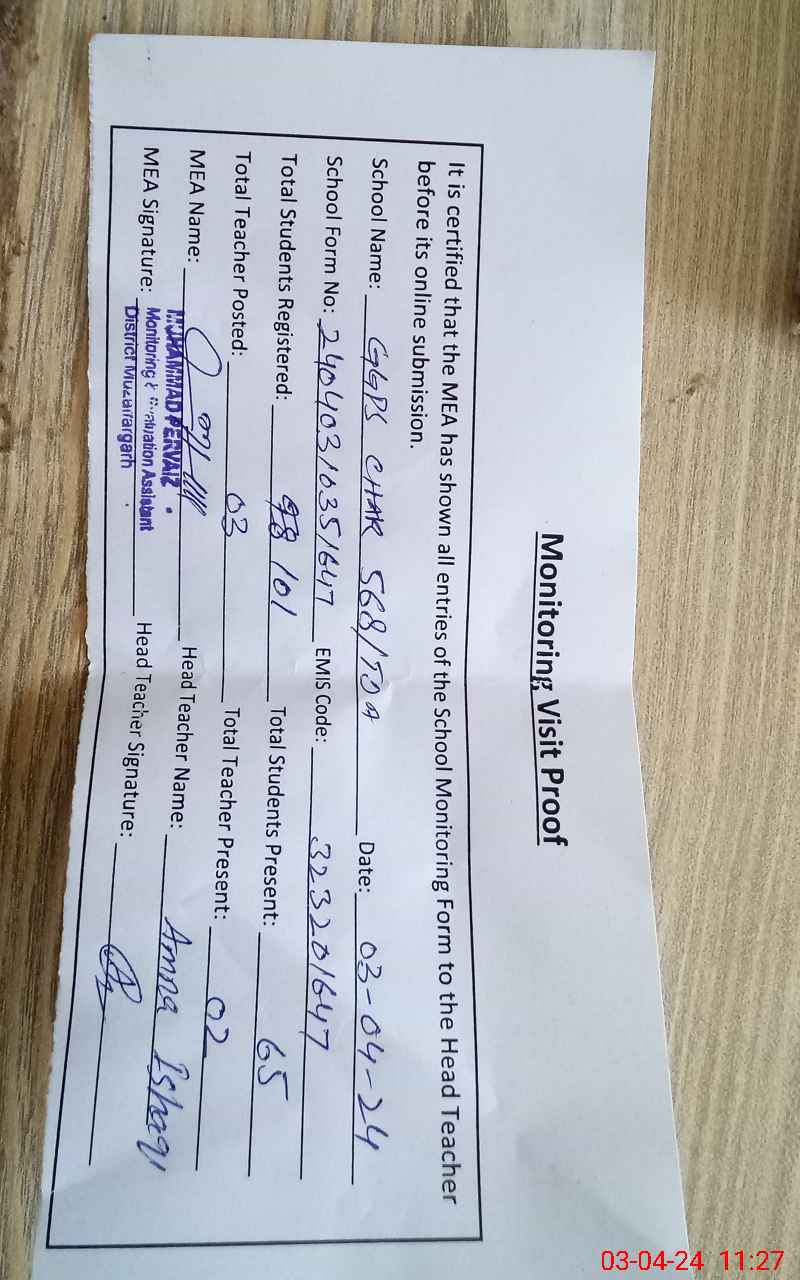 Monitoring Visit Proof
It is certified that the MEA has shown all entries of the School Monitoring Form to the Head Teacher
before its online submission.
School Name: GGPS CHAK 568/TDA Date: 03-04-24
School Form No: 24040310351647 EMIS Code: 323201647
Total Students Registered: 98 101 Total Students Present: 65
Total Teacher Posted: 03 Total Teacher Present: 02
MEA Name: Head Teacher Name: Amna Ishaq
MEA Signature: Head Teacher Signature:
MUHAMMAD PERVAIZ
Monitoring & Evaluation Assistant
District Muzaffargarh
03-04-24 11:27